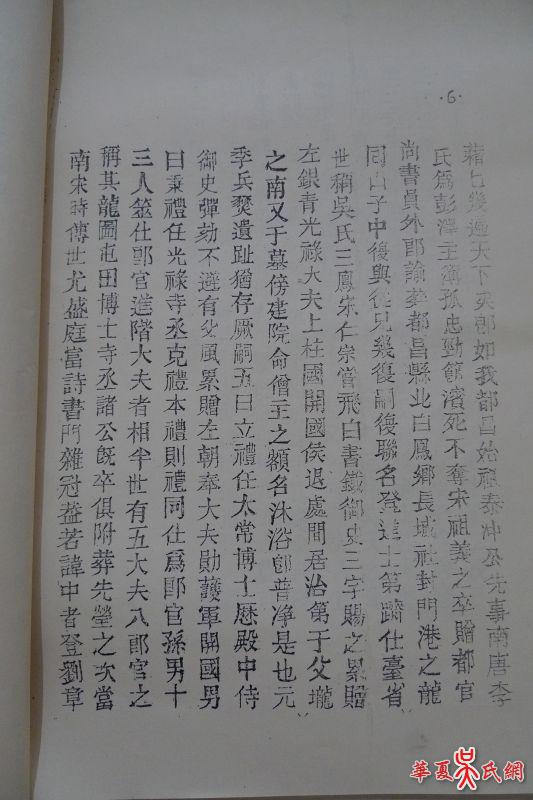 ·6·
藉已幾遍天下矣郎如我都昌始祖泰冲公先事南唐李
氏爲彭澤主簿孤忠勁節濱死不奪宋祖義之卒贈都官
尚書員外郎諭葬都昌縣北白鳳鄉長城社封門港之龍
同 子中復與從兄幾復嗣復聯名登進士第躋仕臺省
世稱吳氏三鳳宋仁宗嘗飛白書鐵御史三字賜之累贈
左銀青光祿大夫上柱國開國侯退處間居治第于父壠
之南又于墓傍建院命僧主之額名沐浴卽普净是也元
季兵燹遺趾猶存厥嗣五曰立禮任太常博士歷殿中侍
御史彈劾不避有父風累贈左朝奉大夫勛護軍開國男
曰秉禮任光祿寺丞克禮本禮則禮同仕爲郎官孫男十
三人筮仕郎官進階大夫者相半世有五大夫八郎官之
稱其龍圖屯田博士寺丞諸公旣卒俱附葬先塋之次當
南宋時傳世尤盛庭富詩書門雜冠盖若諱中者登劉章
華夏吳氏網